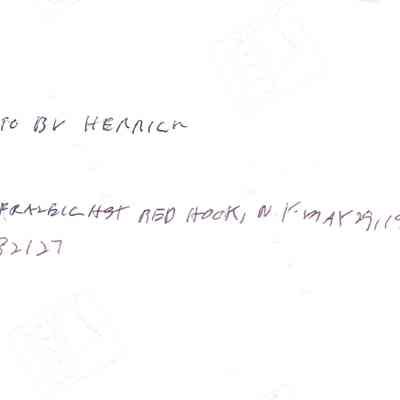 TO BY HERRICK
FRALEIGH ST RED HOOK, N.Y. MAY 29, 19
32127